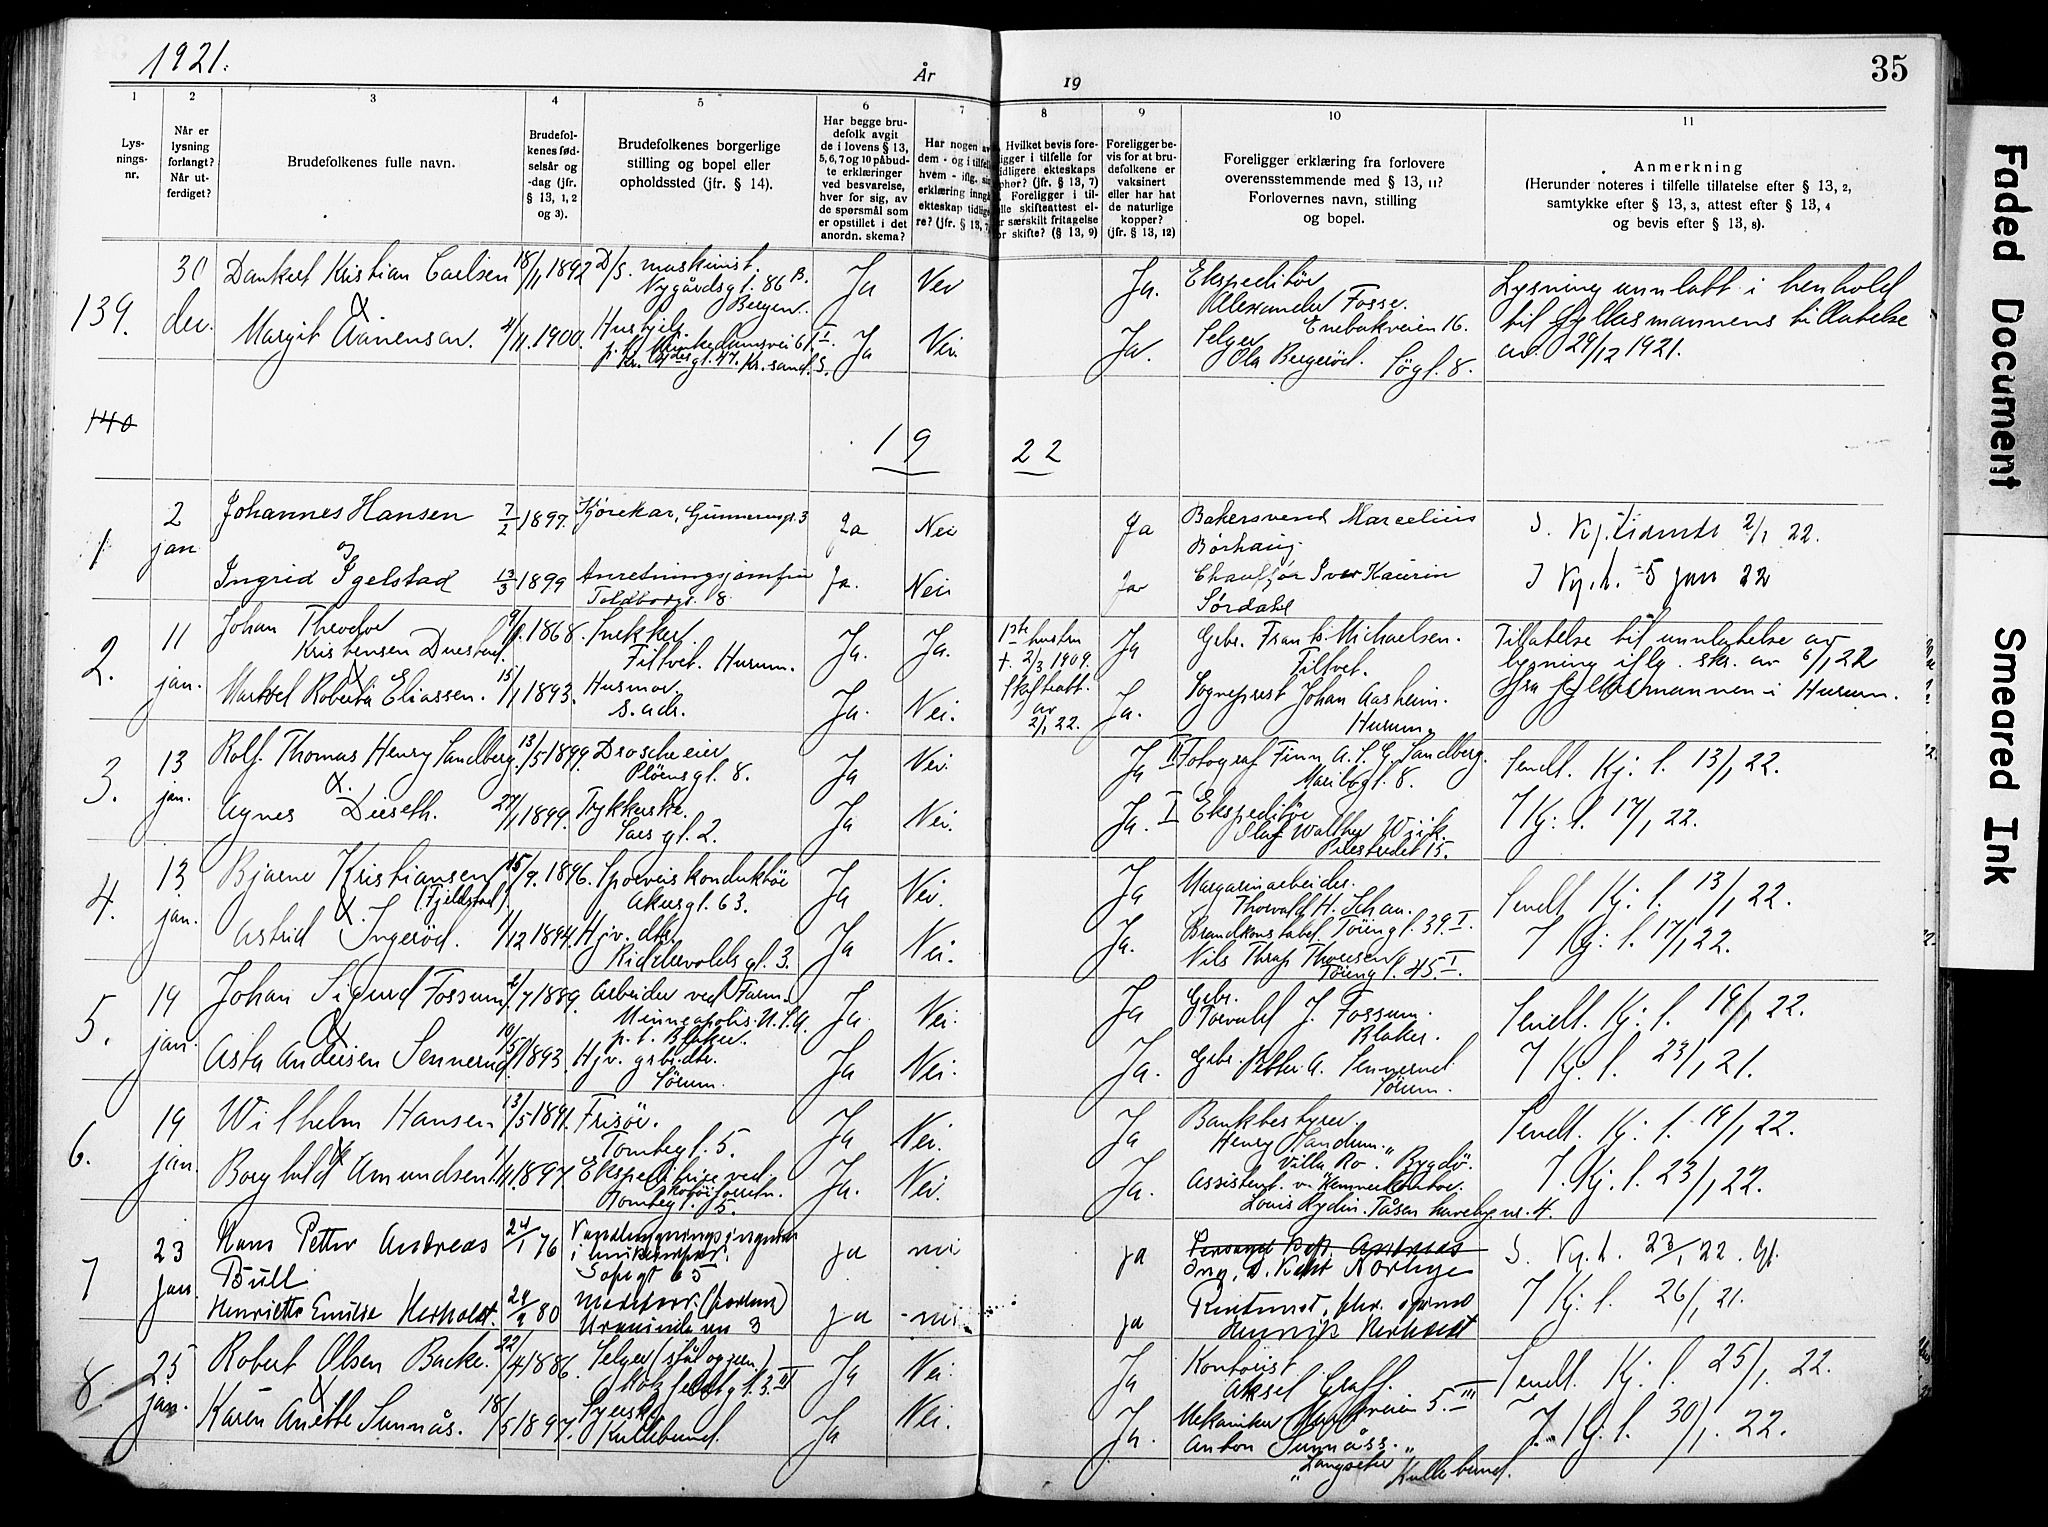 1921.
År
19
35
1
2
3
4
5
6
7
8
9
10
11
Lys-
nings-
nr.
Når er
lysning
forlangt?
Når ut-
ferdiget?
Brudefolkenes fulle navn.
Brudefol-
kenes fød-
selsår og
-dag (jfr.
§ 13, 1, 2
og 3).
Brudefolkenes borgerlige
stilling og bopel eller
opholdssted (jfr. § 14).
Har begge bru-
defolk avgit
de i lovens § 13,
5, 6, 7 og 10 påbud-
te erklæringer
ved besvarelse,
hver for sig, av
de spørsmål som
er opstillet i det
anordn. skema?
Har nogen av
dem - og i tilfelle
hvem - iflg. sin
erklæring inngå
ekteskap tidlige
re? (jfr. § 13, 7
Hvilket bevis fore-
ligger i tilfelle for
tidligere ekteskaps
ophør? (jfr. § 13, 7)
Foreligger i til-
elle skifteattest el-
r særskilt fritagelse
or skifte? (§ 13, 9)
Foreligger be-
vis for at bru-
defolkene er
vaksinert
eller har hat
de naturlige
kopper?
(jfr. § 13, 12)
Foreligger erklæring fra forlovere
overensstemmende med § 13, 11?
Forlovernes navn, stilling
og bopel.
Anmerkning
(Herunder noteres i tilfelle tillatelse efter § 13, 2,
samtykke efter § 13, 3, attest efter § 13, 4
og bevis efter § 13, 8).
139.
30
des.
Dankert Kristian Carlsen
&
Margit Aanensen
18/11 1892
4/11 1900.
D/S. maskinist.
Nygårdsgt. 86 B.
Bergen.
Hushjelp.
p.t. Munkedamsvei 61 I.
gt. 47. Kr.sand. S.
Ja
Ja
Nei
Nei.
Ja.
Ja.
Ekspeditør
Alexander Fosse.
Enebakveien 16.
Selger
Ola Bergerød. Søgt. 8.
Lysning unnlatt i henhold
til fylkesmannens tillatelse
av 29/12 1921.
140
19 22
1
2
jan
Johannes Hansen
og
Ingrid Igelstad
7/2 1897.
13/3 1899
Kjørekar, Gunnerusgt. 3
Anretningsjomfru
Toldbodgt. 8
Ja
Ja.
Nei
Nei
Ja
Ja
Bakersvend Marcelius
Børhaug.
Chauffør Iver Kaurin
Sørdahl
S. Kj.tidende 2/1 22.
I Kj.t. 5 jan 22
2.
11
jan.
Johan Theodor
Kristensen Duestad.
&
Markel Roberta Eliassen.
9/1. 1868.
15/1 1893.
Snekker.
Filtvet. Hurum.
Husmor.
s. adr.
Ja.
Ja.
Ja.
Nei.
1ste hustru
†. 2/3 1909.
Skifteatt.
av
2/1 22.
Ja
Ja.
Grbr. Frants Michaelsen.
Filtvet.
Sogneprest Johan Aasheim.
Hurum.
Tillatelse til unnlatelse av
lysning iflg. skr. av 6/1 22
fra fylkesmannen i Hurum.
3.
13
jan.
Rolf Thomas Henry Sandberg.
&
Agnes Diseth.
13/5 1899.
27/1 1899.
Droscheeier
Pløensgt. 8.
Trykkerske.
Saxegt. 2.
Ja
Ja
Nei.
Nei.
Ja
Ja.
II Fotograf Finn A. S. G. Sandberg.
Maribogt. 8.
I Ekspeditør
Olaf Walther Wiik.
Pilestredet 15.
Sendt. Kj. t. 13/1 22.
I Kj. t. 17/1 22.
4.
13
jan.
Bjarne Kristiansen
(Fjeldstad).
&
Astrid Ingerød.
15/9. 1896.
1/12 1894.
Sporveiskonduktør
Akersgt. 63.
Hjv. dtr.
Riddervoldsgt. 3.
Ja
Ja
Nei.
Nei.
Ja
Ja.
Margarinarbeider.
Thorvald H. Schau.
Tøiengt. 39. I.
Brandkonstabel
Nils Thrap Thoresen
Tøiengt. 45 I.
Sendt Kj. t. 13/1 22.
I Kj. t. 17/1 22.
5.
19
jan.
Johan Sigurd Fossum
&
Asta Andersen Sennerud
2/7 1889.
19/5 1893.
Arbeider ved Farm.
Minneapolis. U.S.A.
p.t. Blaker.
Hjv. grbr.dtr.
Sørum.
Ja.
Ja
Nei.
Nei.
Ja
Ja.
Grbr.
Torvald J. Fossum.
Blaker.
Grbr. Petter A. Sennerud
Sørum.
Sendt. Kj. t. 19/1 22.
I Kj. t. 23/1 21.
6.
19
jan.
Wilhelm Hansen
&
Borghild Amundsen
13/5 1891.
1/11. 1897
Frisør.
Tomtegt. 5.
Ekspeditrise ved
Tomtegt. 5.
Ja
Ja.
Nei.
Nei.
Ja
Ja.
Bankbestyrer.
Henry Sandum.
"Villa Ro". Bygdø.
Assistent v. Kemnerkontor.
Louis Rydin. Tåsen haveby nr. 4.
Sendt. Kj. t. 19/1 22.
I. Kj. t. 23/1 22.
7
23
Jan.
Hans Petter Andreas
Bull
Henriette Emilie Herholdt.
24/1 76
24/2 80
Vandbygningsingeniør
Sofiegt 65
Uranienb. vn 3
ja
ja
nei
nei
ja
ja
Ing. D. Kent Norbye
Henrik Herholdt
S. Kj. t. 23/1 22.
I Kj. t. 26/1 21.
8
25
jan.
Robert Olsen Backe.
&
Karen Anette Sunnås.
22/4 1886.
18/5 1897.
Selger (stål og jern.)
Motzfeldtsgt. 3. II
Syerske
Kullebund.
Ja
Ja
Nei.
Nei.
Ja
Ja.
Kontorist
Aksel Graff.
5. III
Mekaniker
Anton Sunnåss.
"Langsether" Kullebund.
Sendt. Kj. t. 25/1. 22.
I. Kj. t. 30/1. 22.
Faded Document
Smeared Ink